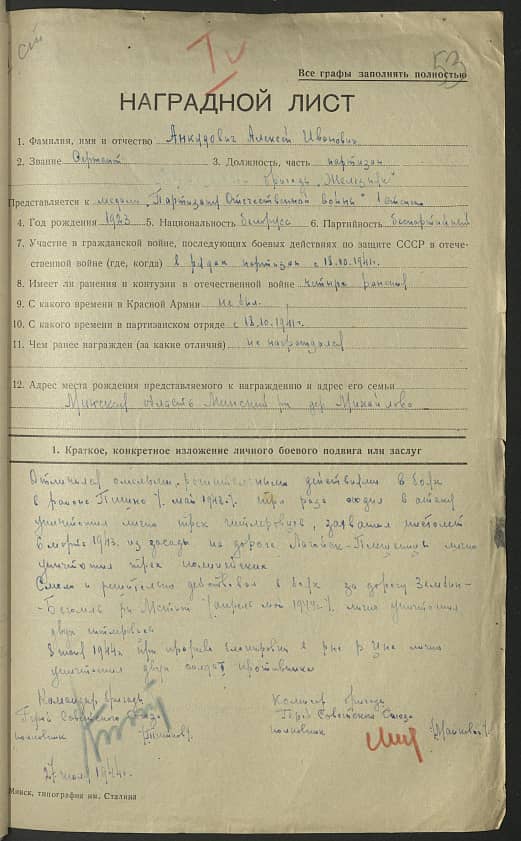 53
Все графы заполнять полностью
НАГРАДНОЙ ЛИСТ
1. Фамилия, имя и отчество Анкудович Алексей Иванович
2. Звание Сержант 3. Должность, часть партизан
бригады „Железняк"
Представляется к медали „Партизану Отечественной войны" I степени
4. Год рождения 1923 5. Национальность белорус 6. Партийность беспартийный
7. Участие в гражданской войне, последующих боевых действиях по защите СССР в отече-
ственной войне (где, когда) в рядах партизан с 18.10.41г.
8. Имеет ли ранения и контузии в отечественной войне четыре ранения
9. С какого времени в Красной Армии не был
10. С какого времени в партизанском отряде с 18.10.1941г.
11. Чем ранее награжден (за какие отличия) не награждался
12. Адрес места рождения представляемого к награждению и адрес его семьи
Минская область Минский р-н дер Михайлово
1. Краткое, конкретное изложение личного боевого подвига или заслуг
Отличался смелыми, решительными действиями в боях
в районе май три раза ходил в атаку
уничтожил лично трех гитлеровцев, захватил пистолет
6 марта 1943 из засады на дороге Логойск-Плещеницы лично
уничтожил трех
Смело и решительно действовал в боях за дорогу Зембин-
-Бегомль апрель май лично уничтожил
двух гитлеровцев
1944г. при прорыве блокировки в р-не р. Цна лично
уничтожил двух солдат противника
Командир бригады Комиссар бригады
Герой Советского Союза Герой Советского Союза
полковник (Титков) полковник
27 1944г.
Минск, типография им. Сталина